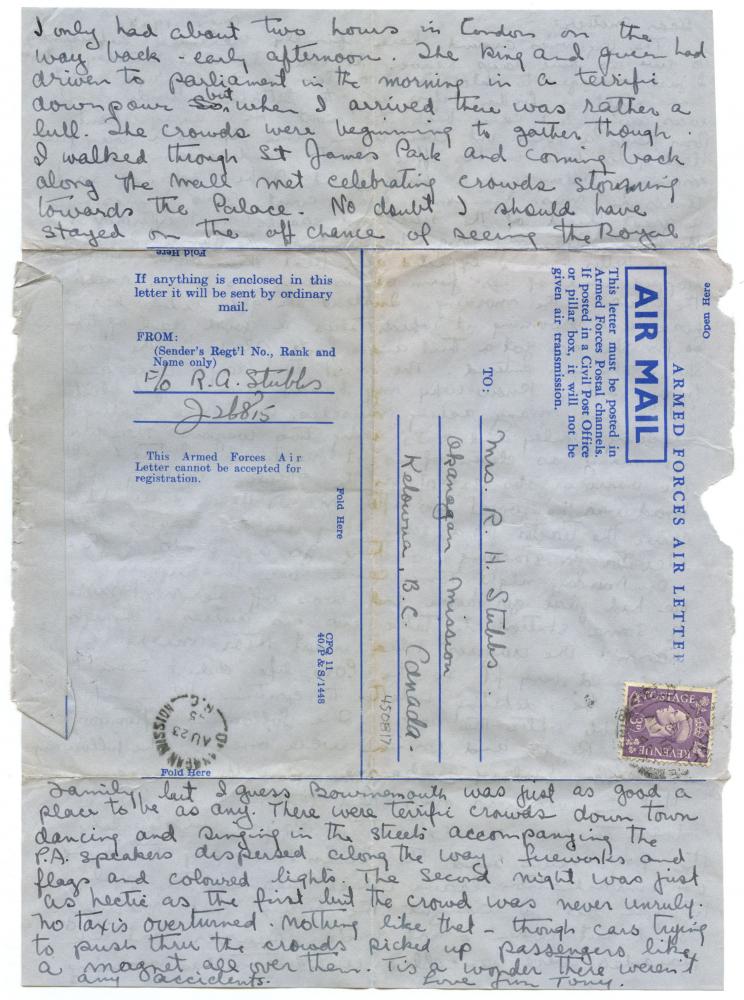 I only had about two hours in London on the
way back - early afternoon. The King and queen had
driven to parliament in the morning in a terrific
downpour but when I arrived there was rather a
lull. The crowds were beginning to gather though.
I walked through St James Park and coming back
along the Mall met celebrating crowds storming
towards the Palace. No doubt I should have
stayed on the off chance of seeing the Royal
Fold Here
If anything is enclosed in this
letter it will be sent by ordinary
mail.
FROM:
(Sender's Regt'l No., Rank and
Name only)
F/O R.A. Stubbs
J-26815
This Armed Forces Air
Letter cannot be accepted for
registration.
Fold Here
CFQ 11
40/P & S/1448
Open Here
ARMED FORCES AIR LETTER
AIR MAIL
This letter must be posted in
Armed Forces Postal channels.
If posted in a Civil Post Office
or pillar box, it will not be
given air transmission.
TO:
Mrs. R. H. Stubbs.
Okanagan Mission
Kelowna, B.C. Canada.
450817
POSTAGE
3D
REVENUE
OKANAGAN MISSION
AU 23
45
B.C.
Fold Here
Family, but I guess Bournemouth was just as good a
place to be as any. There were terrific crowds down town
dancing and singing in the streets accompanying the
P.A. speakers dispersed along the way, fireworks and
flags and coloured lights. The second night was just
as hectic as the first but the crowd was never unruly.
no taxis overturned. nothing like that - though cars trying
to push thru the crowds picked up passengers like
a magnet all over them. Tis a wonder there weren't
any accidents. Love from Tony.